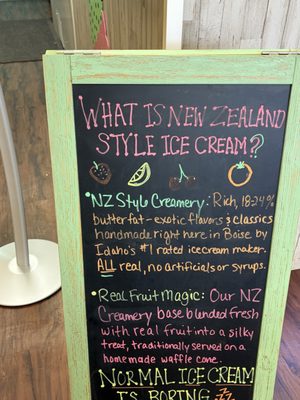 WHAT IS NEW ZEALAND
STYLE ICE CREAM?
•NZ Style Creamery: Rich, 18-24%
butterfat - exotic flavors & classics
handmade right here in Boise by
Idaho's #1 rated ice cream maker.
ALL real, no artificials or syrups.
• Real Fruit Magic: Our NZ
Creamery base blended fresh
with real fruit into a silky
treat, traditionally served on a
homemade waffle cone.
NORMAL ICE CREAM
IS BORING ZZ